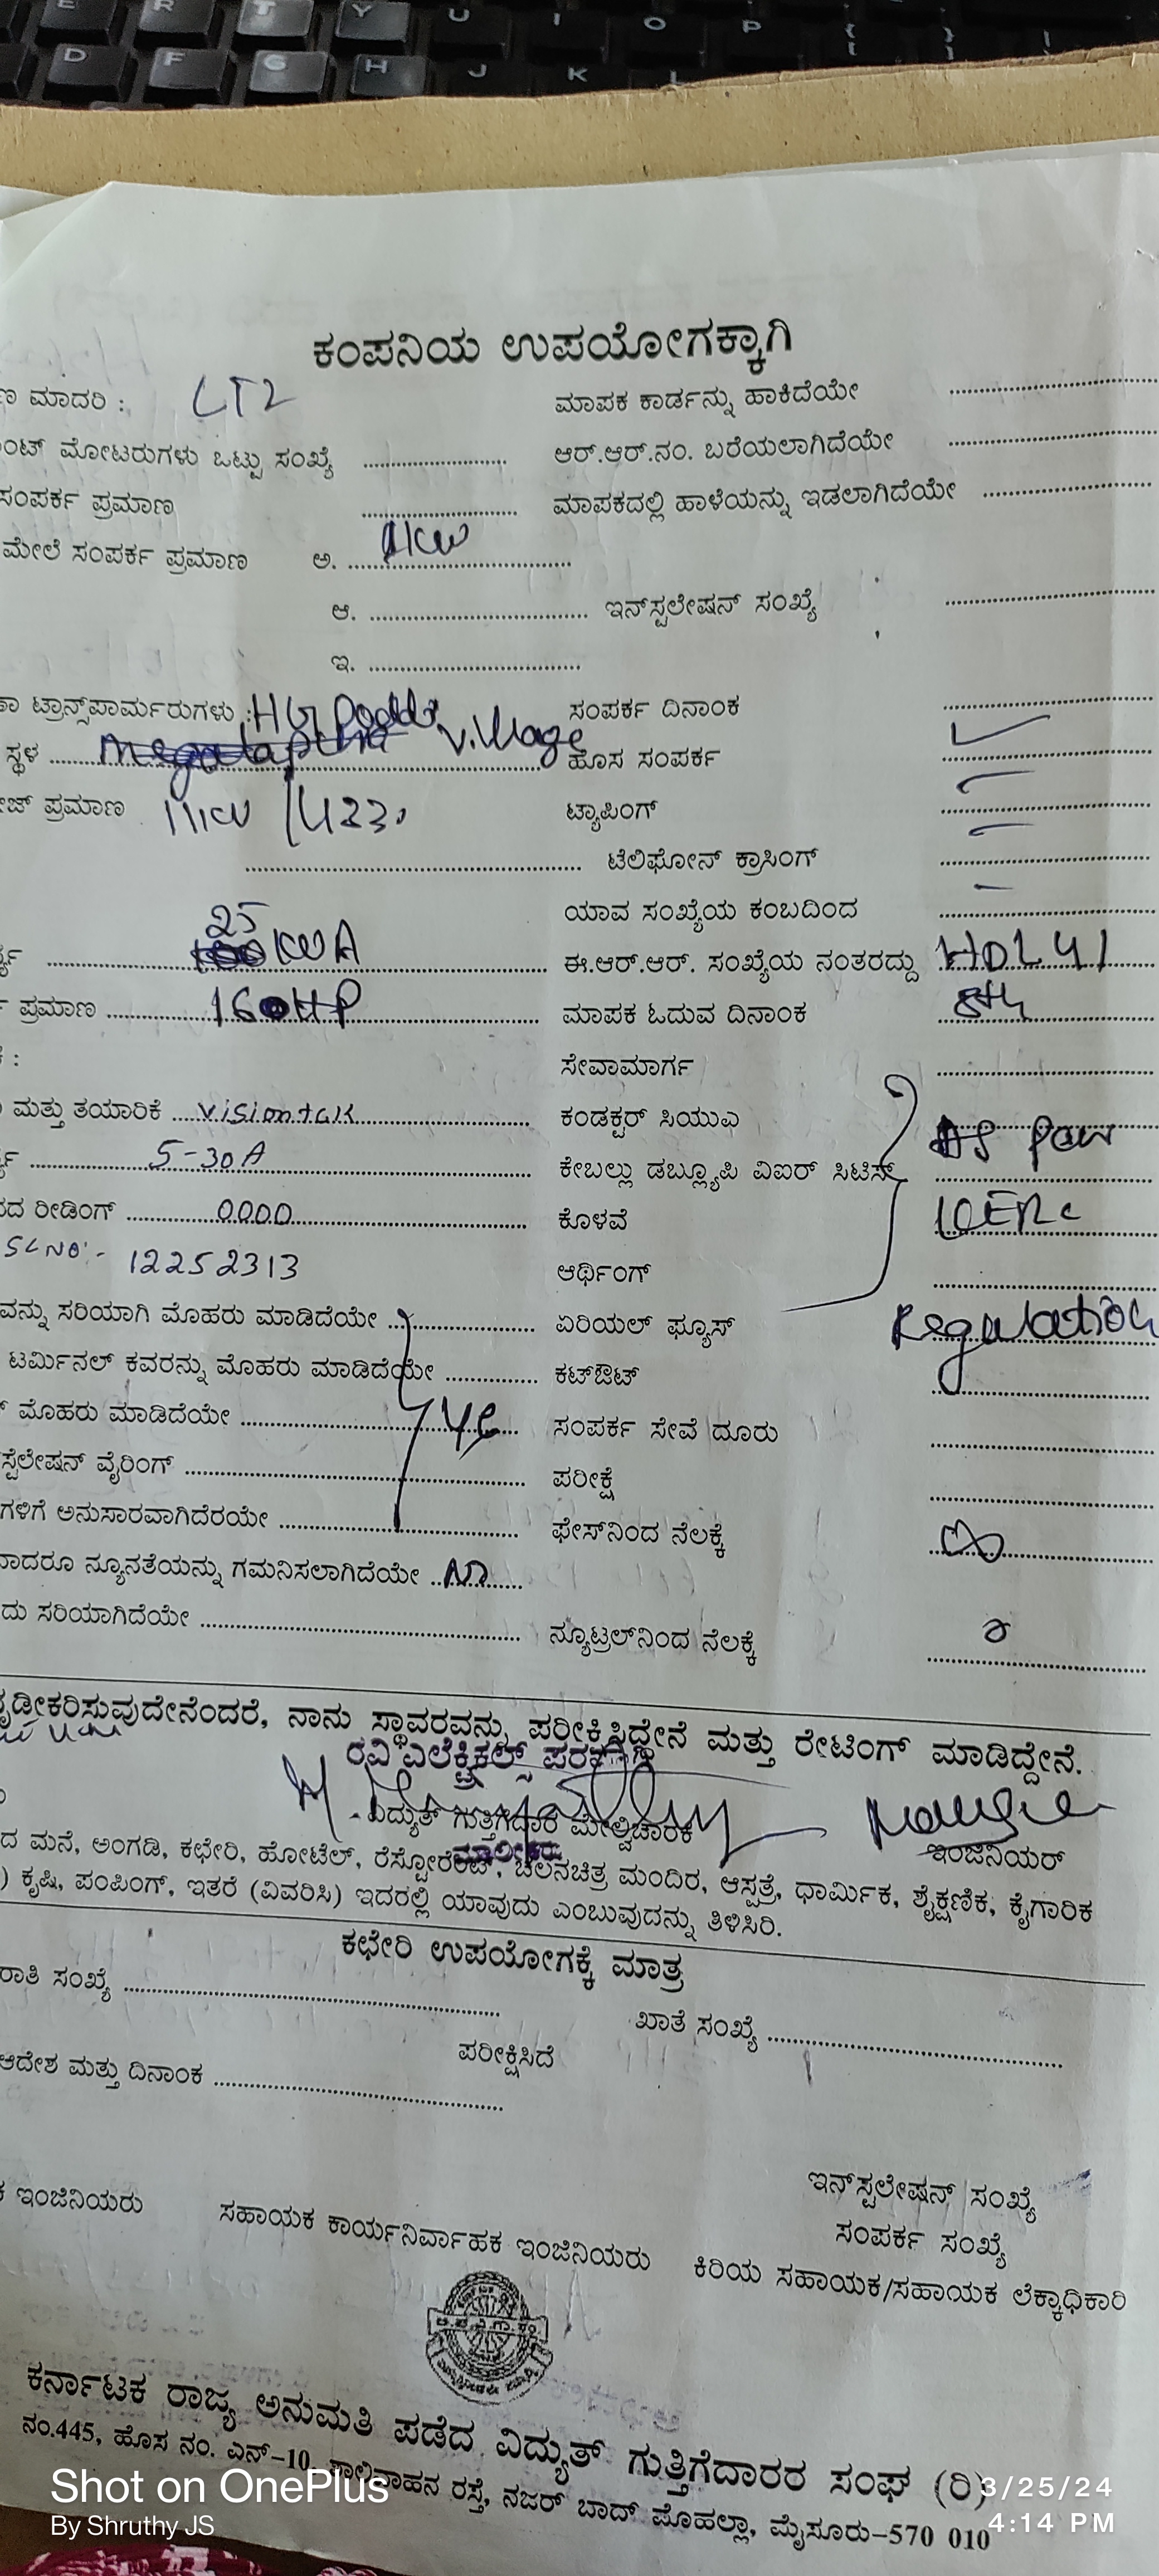 E R T Y U I O P { }
D F G H J K L
ಕಂಪನಿಯ ಉಪಯೋಗಕ್ಕಾಗಿ
ಣ ಮಾದರಿ : LT2 ಮಾಪಕ ಕಾರ್ಡನ್ನು ಹಾಕಿದೆಯೇ
ಂಟ್ ಮೋಟರುಗಳು ಒಟ್ಟು ಸಂಖ್ಯೆ ಆರ್.ಆರ್.ನಂ. ಬರೆಯಲಾಗಿದೆಯೇ
ಸಂಪರ್ಕ ಪ್ರಮಾಣ ಮಾಪಕದಲ್ಲಿ ಹಾಳೆಯನ್ನು ಇಡಲಾಗಿದೆಯೇ
ಮೇಲೆ ಸಂಪರ್ಕ ಪ್ರಮಾಣ ಅ. 1KW
ಆ. ಇನ್‌ಸ್ಟಲೇಷನ್ ಸಂಖ್ಯೆ
ಇ.
ಟ್ರಾನ್ಸ್‌ಪಾರ್ಮರುಗಳು : HG Doddi ಸಂಪರ್ಕ ದಿನಾಂಕ
ಸ್ಥಳ Village ಹೊಸ ಸಂಪರ್ಕ
ಜ್ ಪ್ರಮಾಣ 11KV / ಟ್ಯಾಪಿಂಗ್
ಟೆಲಿಫೋನ್ ಕ್ರಾಸಿಂಗ್
ಯಾವ ಸಂಖ್ಯೆಯ ಕಂಬದಿಂದ
25 KVA ಈ.ಆರ್.ಆರ್. ಸಂಖ್ಯೆಯ ನಂತರದ್ದು HDL41
ಪ್ರಮಾಣ HP ಮಾಪಕ ಓದುವ ದಿನಾಂಕ 8th
ಸೇವಾಮಾರ್ಗ
ಮತ್ತು ತಯಾರಿಕೆ Visiontek ಕಂಡಕ್ಟರ್ ಸಿಯುಎ As per
5-30A ಕೇಬಲ್ಲು ಡಬ್ಲ್ಯೂಪಿ ವಿಐಆರ್ ಸಿಟಿಸ್
ದ ರೀಡಿಂಗ್ 0000 ಕೊಳವೆ KERC
SL NO:- 12252313 ಆರ್ಥಿಂಗ್
ವನ್ನು ಸರಿಯಾಗಿ ಮೊಹರು ಮಾಡಿದೆಯೇ ಏರಿಯಲ್ ಫ್ಯೂಸ್ Regulation
ಟರ್ಮಿನಲ್ ಕವರನ್ನು ಮೊಹರು ಮಾಡಿದೆಯೇ ಕಟ್‌ಔಟ್
ಮೊಹರು ಮಾಡಿದೆಯೇ Yes ಸಂಪರ್ಕ ಸೇವೆ ದೂರು
ಸ್ಟೆಲೇಷನ್ ವೈರಿಂಗ್ ಪರೀಕ್ಷೆ
ಗಳಿಗೆ ಅನುಸಾರವಾಗಿದೆರಯೇ ಫೇಸ್‌ನಿಂದ ನೆಲಕ್ಕೆ ∞
ಾದರೂ ನ್ಯೂನತೆಯನ್ನು ಗಮನಿಸಲಾಗಿದೆಯೇ No
ದು ಸರಿಯಾಗಿದೆಯೇ ನ್ಯೂಟ್ರಲ್‌ನಿಂದ ನೆಲಕ್ಕೆ
ದೃಢೀಕರಿಸುವುದೇನೆಂದರೆ, ನಾನು ಸ್ಥಾವರವನ್ನು ಪರೀಕ್ಷಿಸಿದ್ದೇನೆ ಮತ್ತು ರೇಟಿಂಗ್ ಮಾಡಿದ್ದೇನೆ.
ರವಿ ಎಲೆಕ್ಟ್ರಿಕಲ್ಸ್ ಪರವಾಗಿ
ವಿದ್ಯುತ್ ಗುತ್ತಿಗೆದಾರ ಮೇಲ್ವಿಚಾರಕ ಇಂಜಿನಿಯರ್
ದ ಮನೆ, ಅಂಗಡಿ, ಕಛೇರಿ, ಹೋಟೆಲ್, ರೆಸ್ಟೋರೆಂಟ್, ಚಲನಚಿತ್ರ ಮಂದಿರ, ಆಸ್ಪತ್ರೆ, ಧಾರ್ಮಿಕ, ಶೈಕ್ಷಣಿಕ, ಕೈಗಾರಿಕ
) ಕೃಷಿ, ಪಂಪಿಂಗ್, ಇತರೆ (ವಿವರಿಸಿ) ಇದರಲ್ಲಿ ಯಾವುದು ಎಂಬುವುದನ್ನು ತಿಳಿಸಿರಿ.
ಕಛೇರಿ ಉಪಯೋಗಕ್ಕೆ ಮಾತ್ರ
ರಾತಿ ಸಂಖ್ಯೆ ಖಾತೆ ಸಂಖ್ಯೆ
ಪರೀಕ್ಷಿಸಿದೆ
ಆದೇಶ ಮತ್ತು ದಿನಾಂಕ
ಇನ್‌ಸ್ಟಲೇಷನ್ ಸಂಖ್ಯೆ
ಸಂಪರ್ಕ ಸಂಖ್ಯೆ
ಕ ಇಂಜಿನಿಯರು ಸಹಾಯಕ ಕಾರ್ಯನಿರ್ವಾಹಕ ಇಂಜಿನಿಯರು ಕಿರಿಯ ಸಹಾಯಕ/ಸಹಾಯಕ ಲೆಕ್ಕಾಧಿಕಾರಿ
ಕರ್ನಾಟಕ ರಾಜ್ಯ ಅನುಮತಿ ಪಡೆದ ವಿದ್ಯುತ್ ಗುತ್ತಿಗೆದಾರರ ಸಂಘ (ರಿ)
ನಂ.445, ಹೊಸ ನಂ. ಎನ್-10, ಶಾಲಿವಾಹನ ರಸ್ತೆ, ನಜರ್ ಬಾದ್ ಮೊಹಲ್ಲಾ, ಮೈಸೂರು-570 010
Shot on OnePlus
By Shruthy JS
3/25/24
4:14 PM